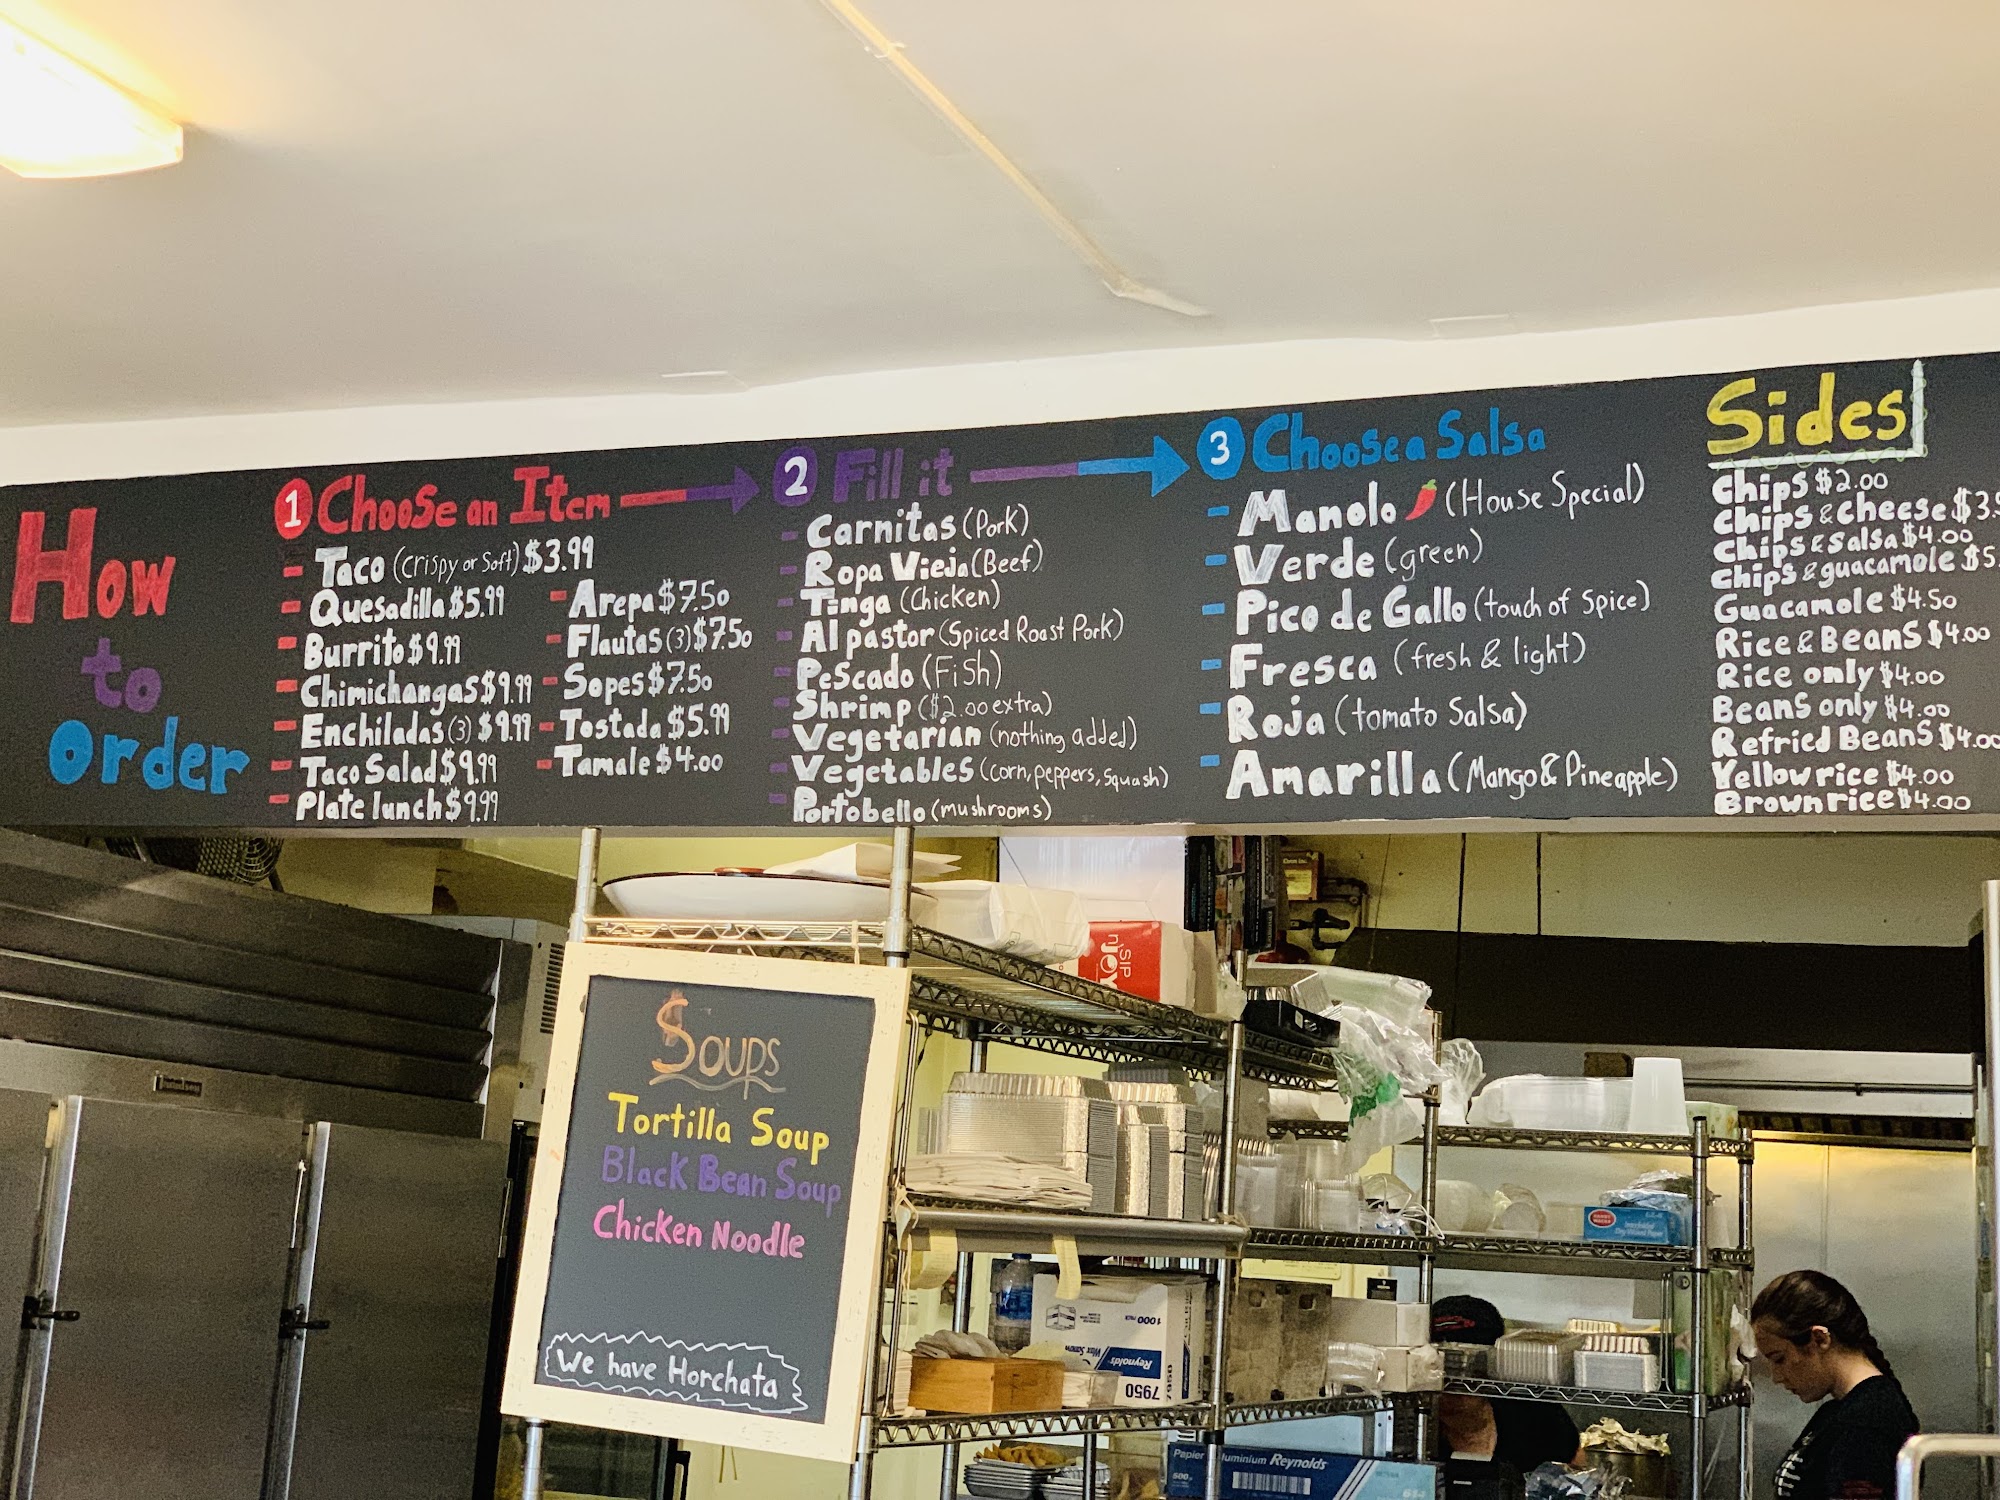 How
to
order
1 Choose an Item
Taco (crispy or soft) $3.99
Quesadilla $5.99
Burrito $9.99
Chimichangas $9.99
Enchiladas (3) $9.99
Taco Salad $9.99
Plate lunch $9.99
Arepa $7.50
Flautas (3) $7.50
Sopes $7.50
Tostada $5.99
Tamale $4.00
2 Fill it
Carnitas (Pork)
Ropa Vieja (Beef)
Tinga (Chicken)
Al pastor (Spiced Roast Pork)
Pescado (Fish)
Shrimp ($2.00 extra)
Vegetarian (nothing added)
Vegetables (corn, peppers, squash)
Portobello (mushrooms)
3 Choose a Salsa
Manolo (House Special)
Verde (green)
Pico de Gallo (touch of spice)
Fresca (fresh & light)
Roja (tomato Salsa)
Amarilla (Mango & Pineapple)
Sides
Chips $2.00
Chips & cheese $3.
Chips & salsa $4.00
Chips & guacamole $5.
Guacamole $4.50
Rice & Beans $4.00
Rice only $4.00
Beans only $4.00
Refried Beans $4.00
Yellow rice $4.00
Brown rice $4.00
Soups
Tortilla Soup
Black Bean Soup
Chicken Noodle
We have Horchata
SIP
nJOY
1000
Reynolds
7950
Papier
luminium Reynolds
500